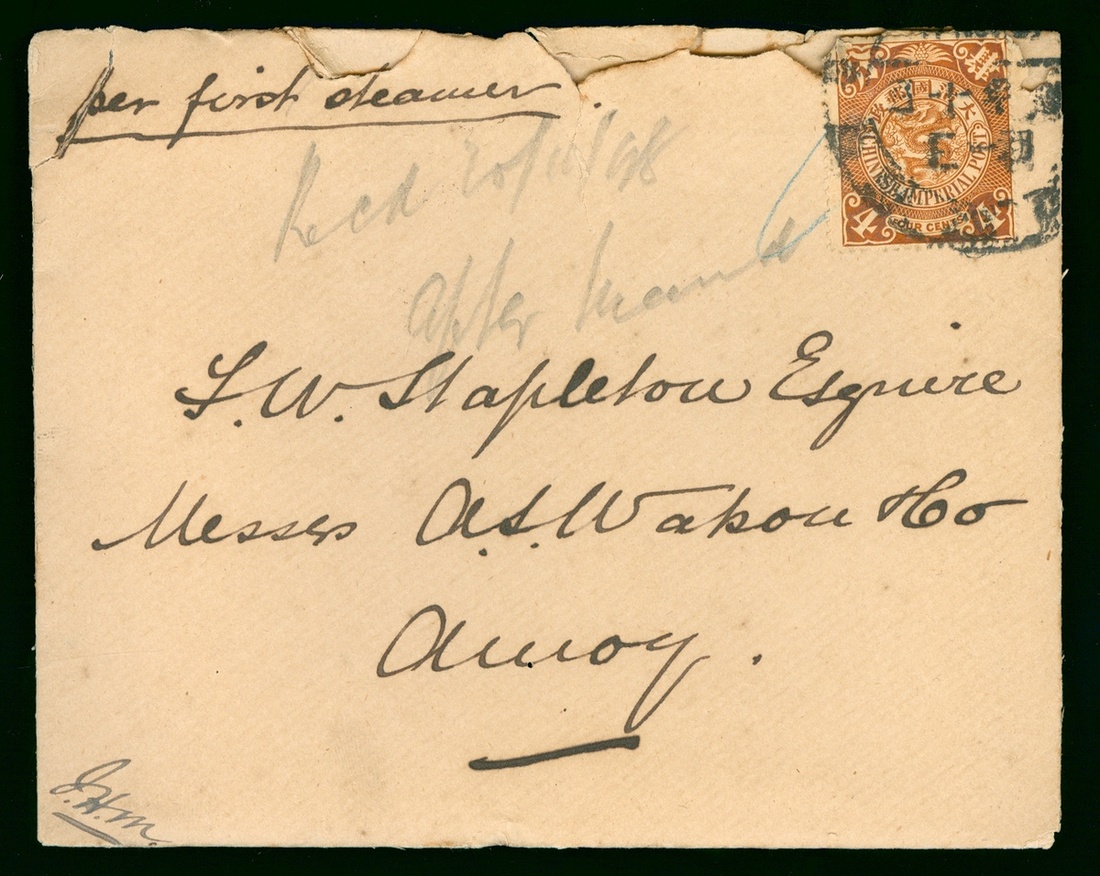 per first steamer.
Recd 20/11/98
after
CHINESE IMPERIAL POST
4 FOUR CENTS 4
S.W. Stapleton Esquire
Messrs A.S. Watson & Co
Amoy.
J.H.M.